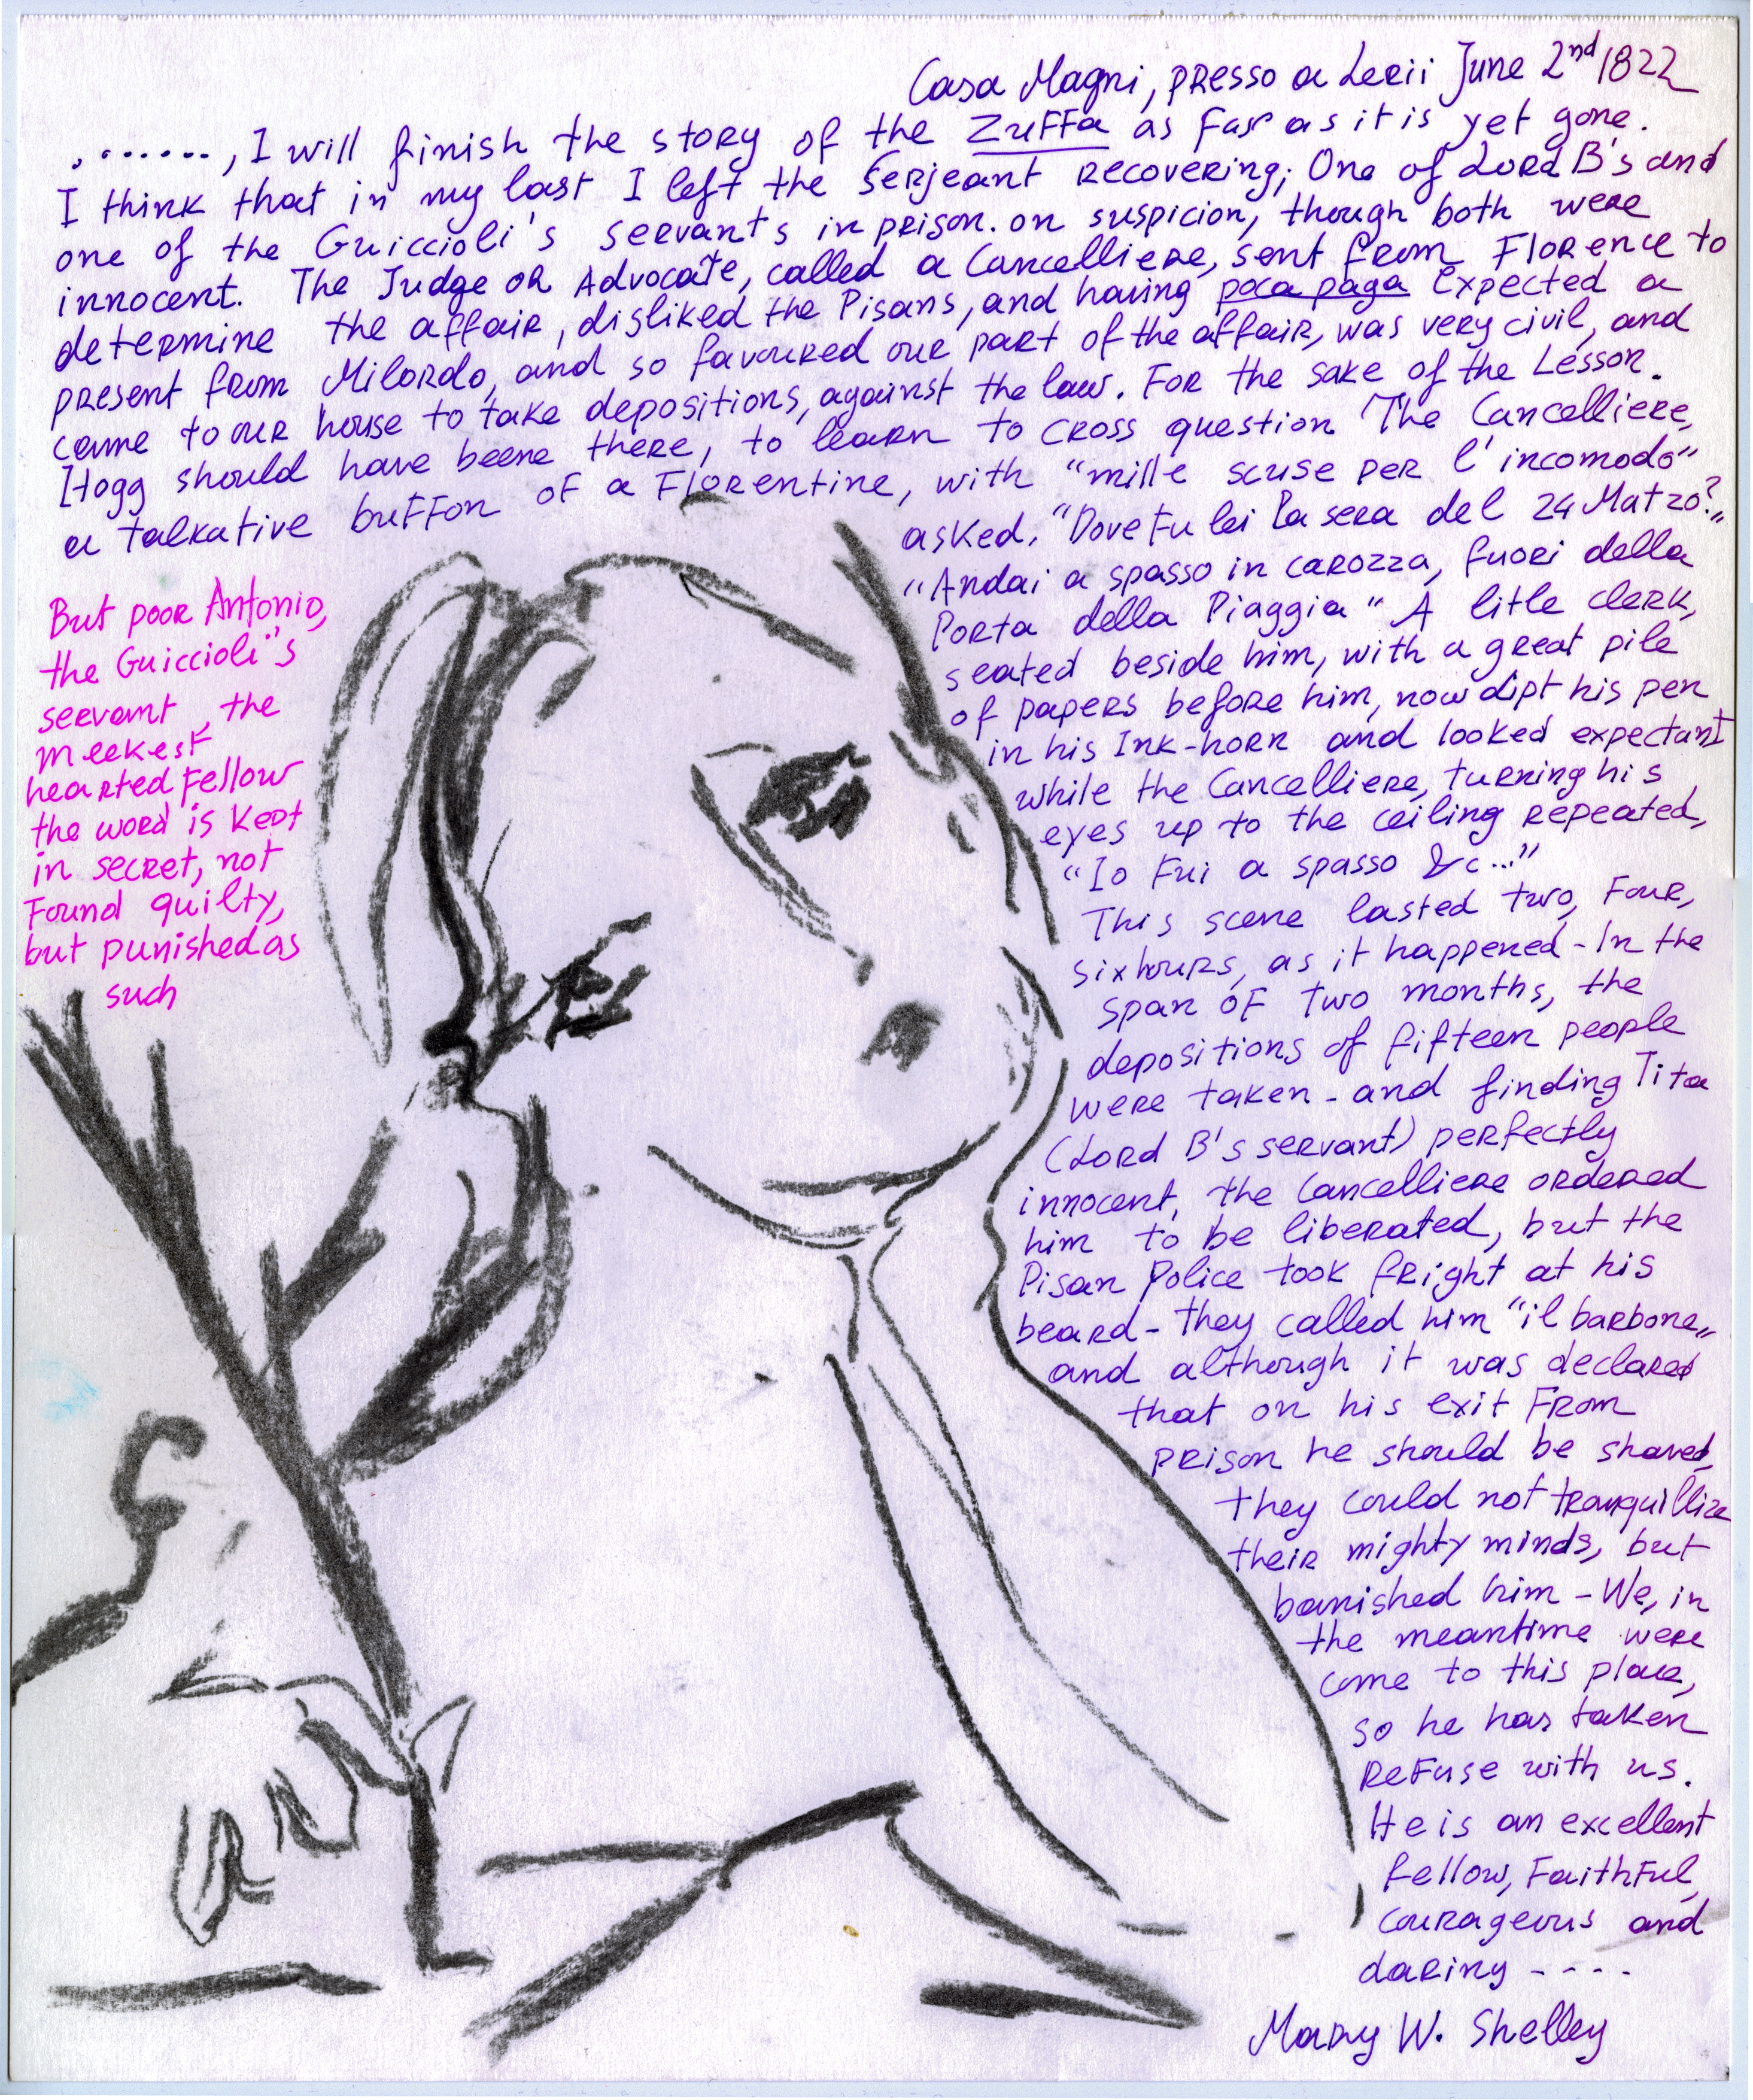 Casa Magni, presso a Lerii June 2nd 1822
. ......, I will finish the story of the Zuffa as far as it is yet gone.
I think that in my last I left the Serjeant recovering; One of Lord B's and
one of the Guiccioli's servants in prison. on suspicion, though both were
innocent. The Judge or Advocate, called a Cancelliere, sent from Florence to
determine the affair, disliked the Pisans, and having poca paga expected a
present from Milordo, and so favoured our part of the affair, was very civil, and
came to our house to take depositions, against the law. For the sake of the Lesson.
Hogg should have beene there, to learn to cross question The Cancelliere,
a talkative buffon of a Florentine, with "mille scuse per l'incomodo"
asked, "Dove fu lei la sera del 24 Matzo?"
"Andai a spasso in carozza, fuori della
Porta della Piaggia" A litle clerk,
seated beside him, with a great pile
of papers before him, now dipt his pen
in his Ink-horn and looked expectant
while the Cancelliere, turning his
eyes up to the ceiling repeated,
"Io Fui a spasso &c..."
This scene lasted two, Four,
six hours, as it happened - In the
span of two months, the
depositions of fifteen people
were taken - and finding Tita
(Lord B's servant) perfectly
innocent, the Cancelliere ordered
him to be liberated, but the
Pisan Police took fright at his
beard - they called him "il barbone"
and although it was declared
that on his exit From
prison he should be shaved,
they could not tranquillize
their mighty minds, but
banished him - We, in
the meantime were
come to this place,
so he has taken
Refuse with us.
He is an excellent
fellow, Faithful,
courageous and
daring ----
Mary W. Shelley
But poor Antonio,
the Guiccioli's
servant, the
meekest
hearted Fellow
the word is kept
in secret, not
Found guilty,
but punished as
such